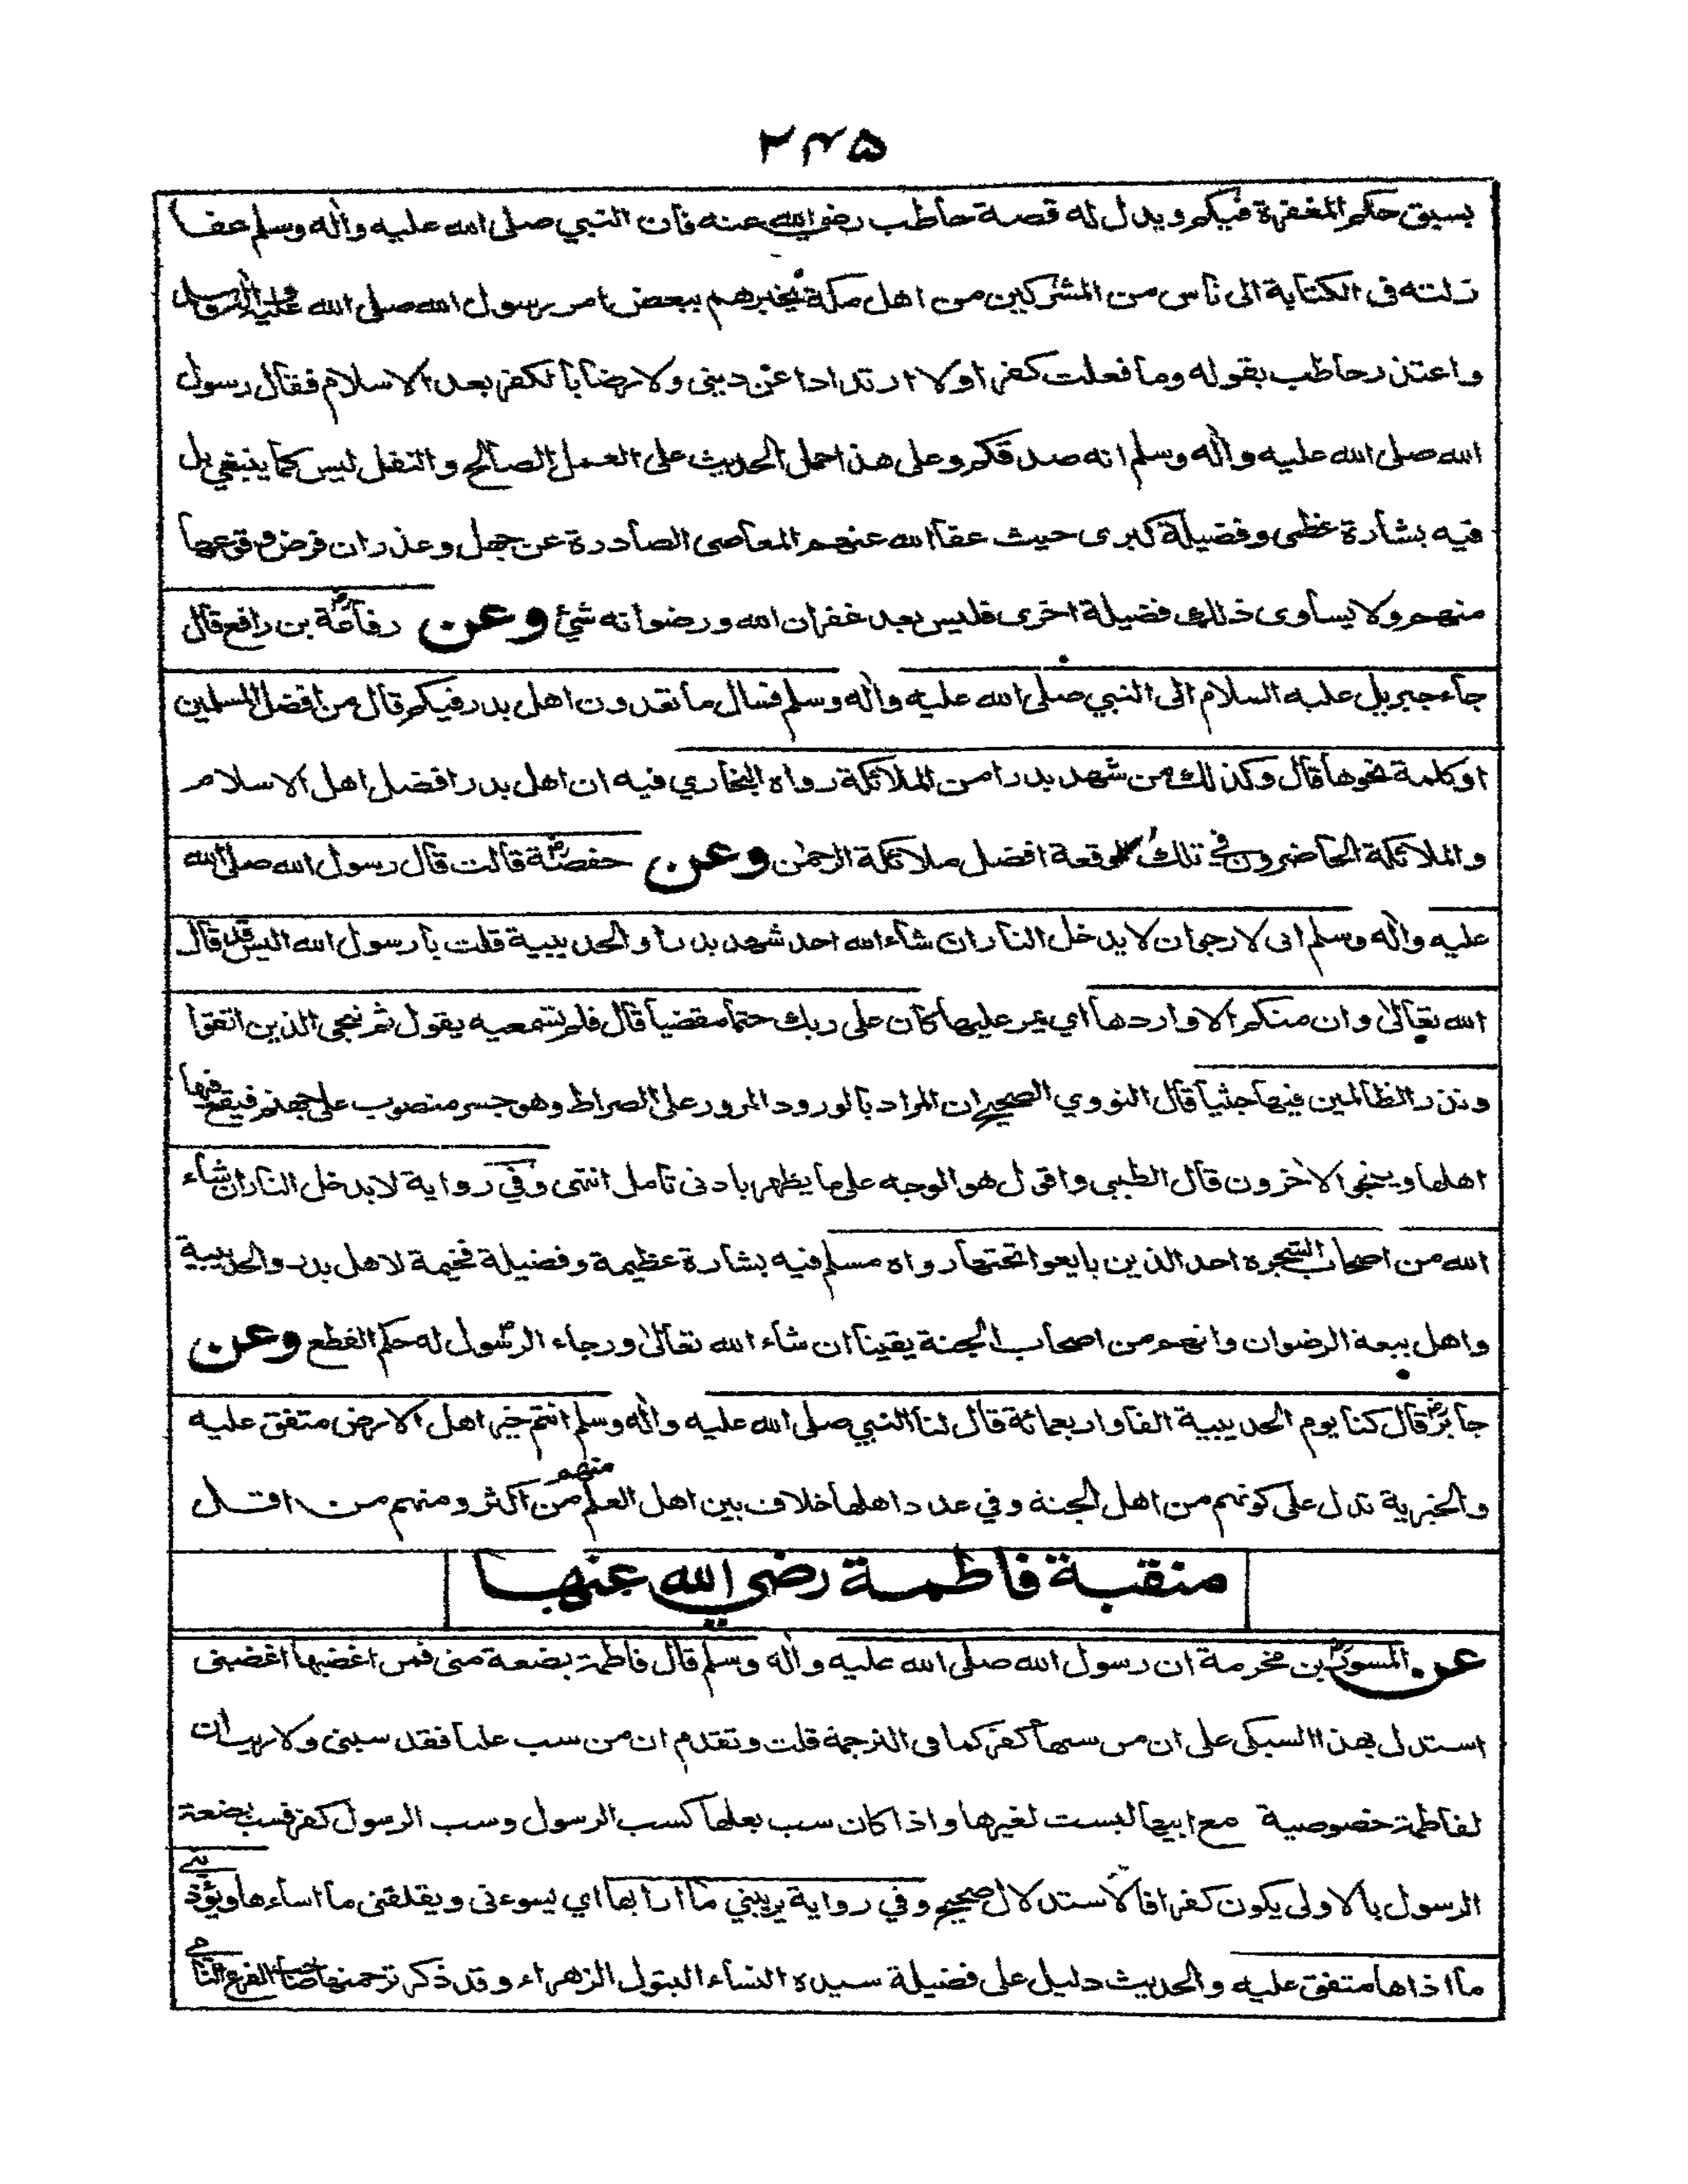 ۲۴۵
بسبق حكم المغفرة فيكم ويدل له قصة حاطب رضي الله عنه فان النبي صلى الله عليه واله وسلم عفا
زلته فى الكتابة الى ناس من المشركين من اهل مكة يخبرهم ببعض امر رسول الله صلى الله عليه
واعتذر حاطب بقوله وما فعلت كفرا ولا ارتدادا عن دينى ولا رضا بالكفر بعد الاسلام فقال رسول
الله صلى الله عليه واله وسلم انه صدقكم وعلى هذا حمل الحديث على العمل الصالح والنفل ليس كما ينبغي بل
فيه بشارة عظمى وفضيلة كبرى حيث عفا الله عنهم المعاصى الصادرة عن جهل وعذر ان فرض وقوعها
منهم ولا يساوى ذلك فضيلة اخرى فليس بعد غفران الله ورضوانه شئ وعن رفاعة بن رافع قال
جاء جبريل عليه السلام الى النبي صلى الله عليه واله وسلم فسال ما تعدون اهل بدر فيكم قال من افضل المسلمين
او كلمة نحوها قال وكذلك من شهد بدرا من الملائكة رواه البخاري فيه ان اهل بدر افضل اهل الاسلام
والملائكة الحاضرون في تلك الوقعة افضل ملائكة الرحمٰن وعن حفصة قالت قال رسول الله صلى الله
عليه واله وسلم انى لارجوان لا يدخل النار ان شاء الله احد شهد بدرا والحديبية قلت يا رسول الله اليس قد قال
الله تعالىٰ وان منكم الا واردها اي يمر عليها كان على ربك حتما مقضيا قال فلم تسمعيه يقول ثم ننجى الذين اتقوا
ونذر الظالمين فيها جثيا قال النووي الصحيح ان المراد بالورود المرور على الصراط وهو جسر منصوب على جهنم فيقع فيها
اهلها وينجو الاخرون قال الطيبى واقول هو الوجه على ما يظهر بادنى تامل انتهى وفي رواية لا يدخل النار ان شاء
الله من اصحاب الشجرة احد الذين بايعوا تحتها رواه مسلم فيه بشارة عظيمة وفضيلة فخيمة لاهل بدر والحديبية
واهل بيعة الرضوان وانهم من اصحاب الجنة يقينا ان شاء الله تعالىٰ ورجاء الرسول له حكم القطع وعن
جابر قال كنا يوم الحديبية الفا واربعمائة قال لنا النبي صلى الله عليه واله وسلم انتم خير اهل الارض متفق عليه
والخيرية تدل على كونهم من اهل الجنة وفي عدد اهلها خلاف بين اهل العلم منهم من اكثر ومنهم من اقل
منقبة فاطمة رضي الله عنها
عن المسور بن مخرمة ان رسول الله صلى الله عليه واله وسلم قال فاطمة بضعة منى فمن اغضبها اغضبنى
استدل بهذا السبكى على ان من سبها كفر كما فى الترجمة قلت وتقدم ان من سب عليا فقد سبنى ولا ريب ان
لفاطمة خصوصية مع ابيها ليست لغيرها واذا كان سب بعلها كسب الرسول وسب الرسول كفر فسب بضعة
الرسول بالاولى يكون كفرا فالاستدلال صحيح وفي رواية يريبني ما ارابها اي يسوءنى ويقلقنى ما اساءها ويؤذينى
ما اذاها متفق عليه والحديث دليل على فضيلة سيدة النساء البتول الزهراء وقد ذكر ترجمتها صاحب الفرع النامى